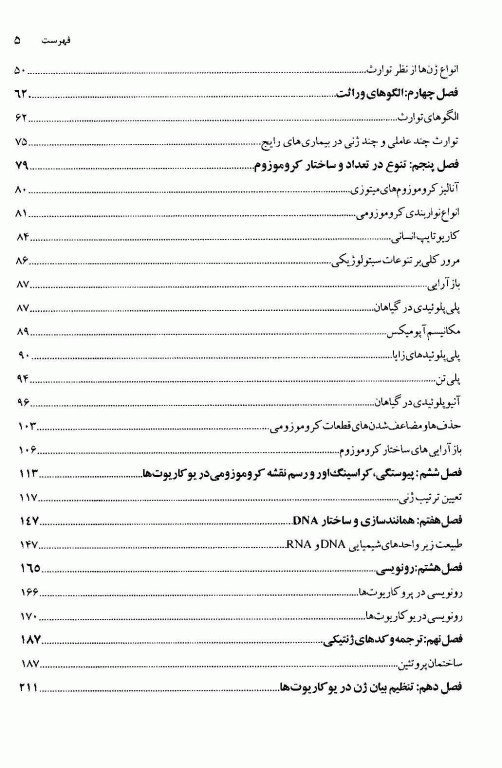 فهرست ۵
انواع ژن‌ها از نظر توارث ۵۰
فصل چهارم: الگوهای وراثت ۶۲
الگوهای توارث ۶۲
توارث چند عاملی و چند ژنی در بیماری‌های رایج ۷۵
فصل پنجم: تنوع در تعداد و ساختار کروموزوم ۷۹
آنالیز کروموزوم‌های میتوزی ۸۰
انواع نواربندی کروموزومی ۸۱
کاریوتایپ انسانی ۸۴
مرور کلی بر تنوعات سیتولوژیکی ۸۶
بازآرایی ۸۷
پلی پلوئیدی در گیاهان ۸۷
مکانیسم آپومیکس ۸۹
پلی پلوئیدهای زایا ۹۰
پلی تن ۹۴
آنیوپلوئیدی در گیاهان ۹۶
حذف‌ها و مضاعف شدن‌های قطعات کروموزومی ۱۰۳
بازآرایی‌های ساختار کروموزوم ۱۰۶
فصل ششم: پیوستگی، کراسینگ‌اور و رسم نقشه کروموزومی در یوکاریوت‌ها ۱۱۳
تعیین ترتیب ژنی ۱۱۷
فصل هفتم: همانندسازی و ساختار DNA ۱۴۷
طبیعت زیر واحدهای شیمیایی DNA و RNA ۱۴۷
فصل هشتم: رونویسی ۱۶۵
رونویسی در پروکاریوت‌ها ۱۶۶
رونویسی در یوکاریوت‌ها ۱۷۰
فصل نهم: ترجمه و کدهای ژنتیکی ۱۸۷
ساختمان پروتئین ۱۸۷
فصل دهم: تنظیم بیان ژن در یوکاریوت‌ها ۲۱۱